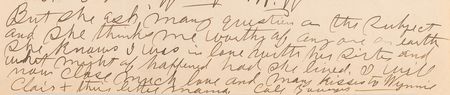 But she ask many question on the subject
and she thinks me worthy of any one on earth
She knows I was in love with his sister and
what might of happened had she lived, I will
now close much love and many kisses to Wynne
Clair + their little mama